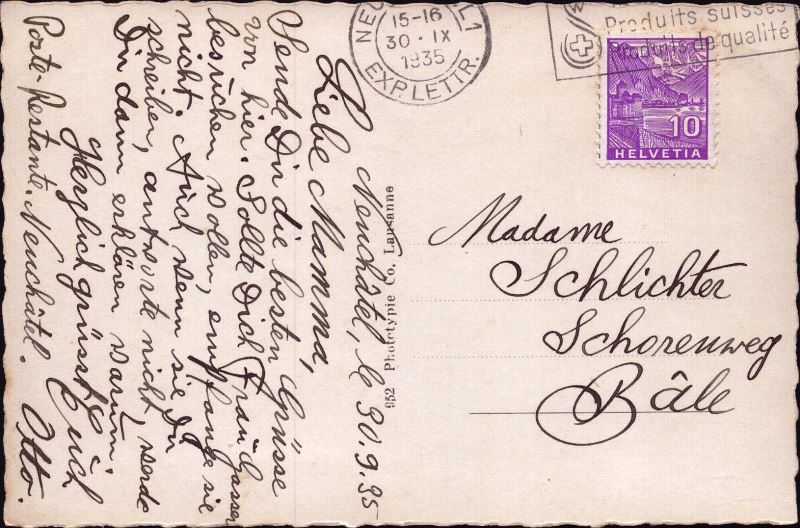 Neuchâtel, le 30.9.35
Liebe Mamma,
Sende Dir die besten Grüsse
von hier. Sollte Dich Frau Gasser
besuchen wollen, empfange sie
nicht. Auch wenn sie Du
schreiben, antworte nicht, werde
Dir dann erklären warum.
Herzlich grüsst Euch
Otto.
Poste-Restante. Neuchâtel.
952 Phototypie Co. Lausanne
15-16
30·IX
1935
EXP. LETTR.
Produits suisses
Produits de qualité
10
HELVETIA
Madame
Schlichter
Schorenweg
Bâle